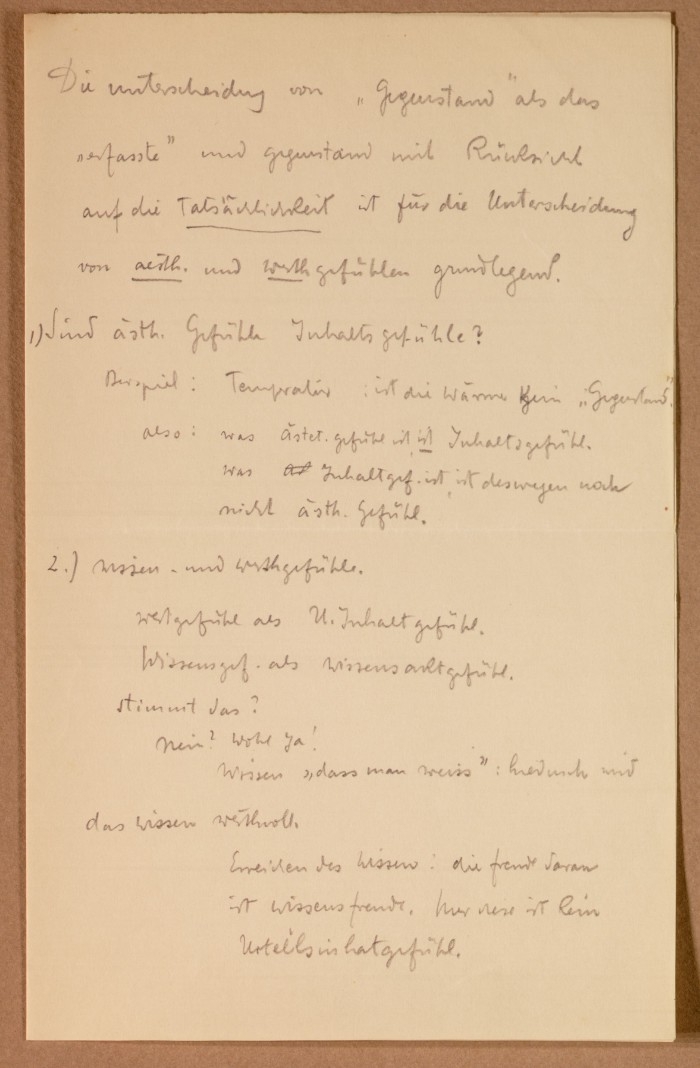 Die Unterscheidung von „Gegenstand" als das
„erfasste" und gegenstand mit Rücksicht
auf die Tatsächlichkeit ist für die Unterscheidung
von aesth. und werthgefühlen grundlegend.
1) Sind ästh. Gefühle Inhaltsgefühle?
Beispiel: Temperatur : ist die Wärme kein „Gegenstand".
also: was ästet. gefühl ist, ist Inhaltsgefühl.
was Inhaltgef. ist, ist deswegen noch
nicht ästh. Gefühl.
2.) wissen- und werthgefühle.
wertgefühl als U. Inhaltgefühl.
Wissensgef. als wissensaktgefühl.
stimmt das?
Nein? Wohl Ja!
Wissen „dass man weiss": wird
das wissen werthvoll.
Erreichen des Wissens: die freude daran
ist wissensfreude. diese ist kein
Urteilsinhatgefühl.